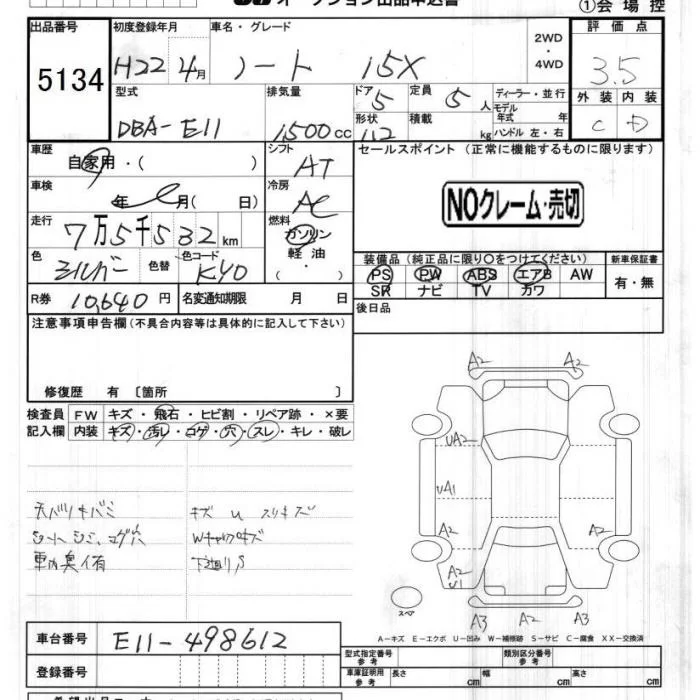 オークション出品申込書
①会場控
出品番号 5134
初度登録年月 H22 4月
車名・グレード ノート 15X
2WD・4WD
評価点 3.5
型式 DBA-E11
排気量 1500cc
ドア 5
定員 5人
形状
積載 kg
ディーラー・並行
モデル年式 年
ハンドル 左・右
外装 C
内装 D
車歴 自家用・( )
シフト AT
セールスポイント (正常に機能するものに限ります)
車検 年 月( 日)
冷房 AC
NOクレーム・売切
走行 7万5千532km
燃料 ガソリン 軽油 ・( )
色 シルバー
色替
色コード KY0
装備品 (純正品に限り○をつけてください)
新車保証書
PS PW ABS エアB AW
SR ナビ TV カワ
有・無
R券 10,640円
名変通知期限 月 日
後日品
注意事項申告欄(不具合内容等は具体的に記入して下さい)
修復歴 有 〔箇所 〕
検査員記入欄
FW キズ・飛石・ヒビ割・リペア跡・×要
内装 キズ・汚れ・コゲ・穴・スレ・キレ・破レ
天バリキバミ キズ U スリキズ
シートシミ、コゲ穴
車内臭イ有 下廻りS
A2 A2
UA2
UA1
A2 A2
A2
U1
スペア
A3 A2 A3
A-キズ E-エクボ U-凹み W-補修跡 S-サビ C-腐食 XX-交換済
車台番号 E11-498612
登録番号
型式指定番号 参考
類別区分番号 参考
車庫証明用 参考 長さ cm 幅 cm 高さ cm